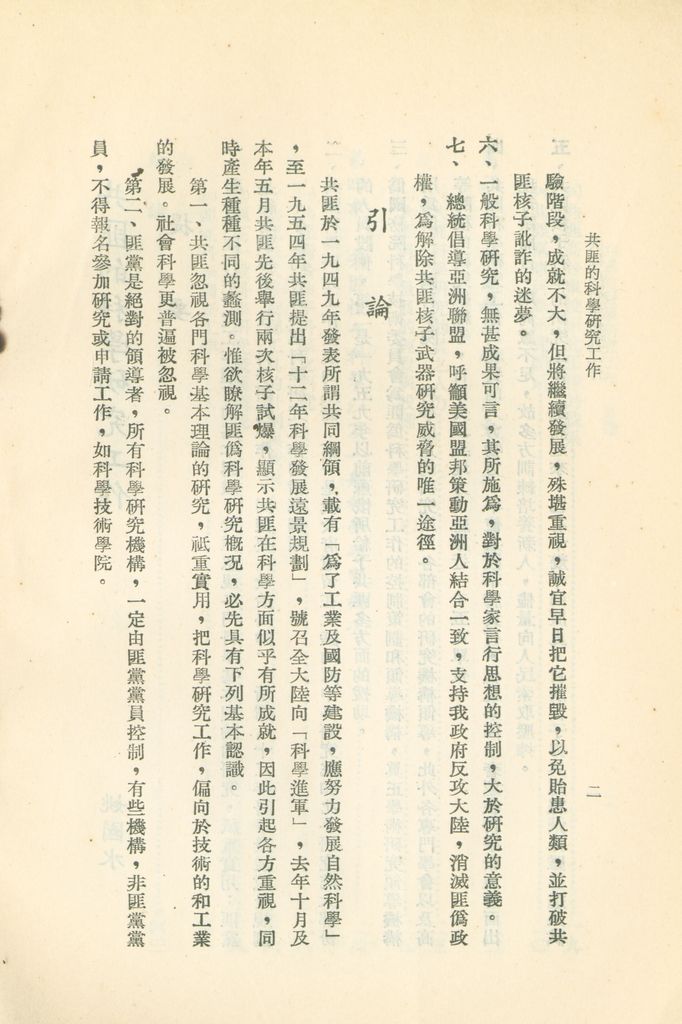 共匪的科學研究工作
二
驗階段，成就不大，但將繼續發展，殊堪重視，誠宜早日把它摧毀，以免貽患人類，並打破共
匪核子訛詐的迷夢。
六、一般科學研究，無甚成果可言，其所施爲，對於科學家言行思想的控制，大於硏究的意義。
七、　總統倡導亞洲聯盟，呼籲美國盟邦策動亞洲人結合一致，支持我政府反攻大陸，消滅匪僞政
權，爲解除共匪核子武器硏究威脅的唯一途徑。
引論
共匪於一九四九年發表所謂共同綱領，載有「爲了工業及國防等建設，應努力發展自然科學」
，至一九五四年共匪提出「十二年科學發展遠景規劃」，號召全大陸向「科學進軍」，去年十月及
本年五月共匪先後舉行兩次核子試爆，顯示共匪在科學方面似乎有所成就，因此引起各方重視，同
時產生種種不同的蠡測。惟欲瞭解匪僞科學硏究概況，必先具有下列基本認識。
第一、共匪忽視各門科學基本理論的硏究，祇重實用，把科學硏究工作，偏向於技術的和工業
的發展。社會科學更普遍被忽視。
第二、匪黨是絕對的領導者，所有科學硏究機構，一定由匪黨黨員控制，有些機構，非匪黨黨
員，不得報名參加硏究或申請工作，如科學技術學院。